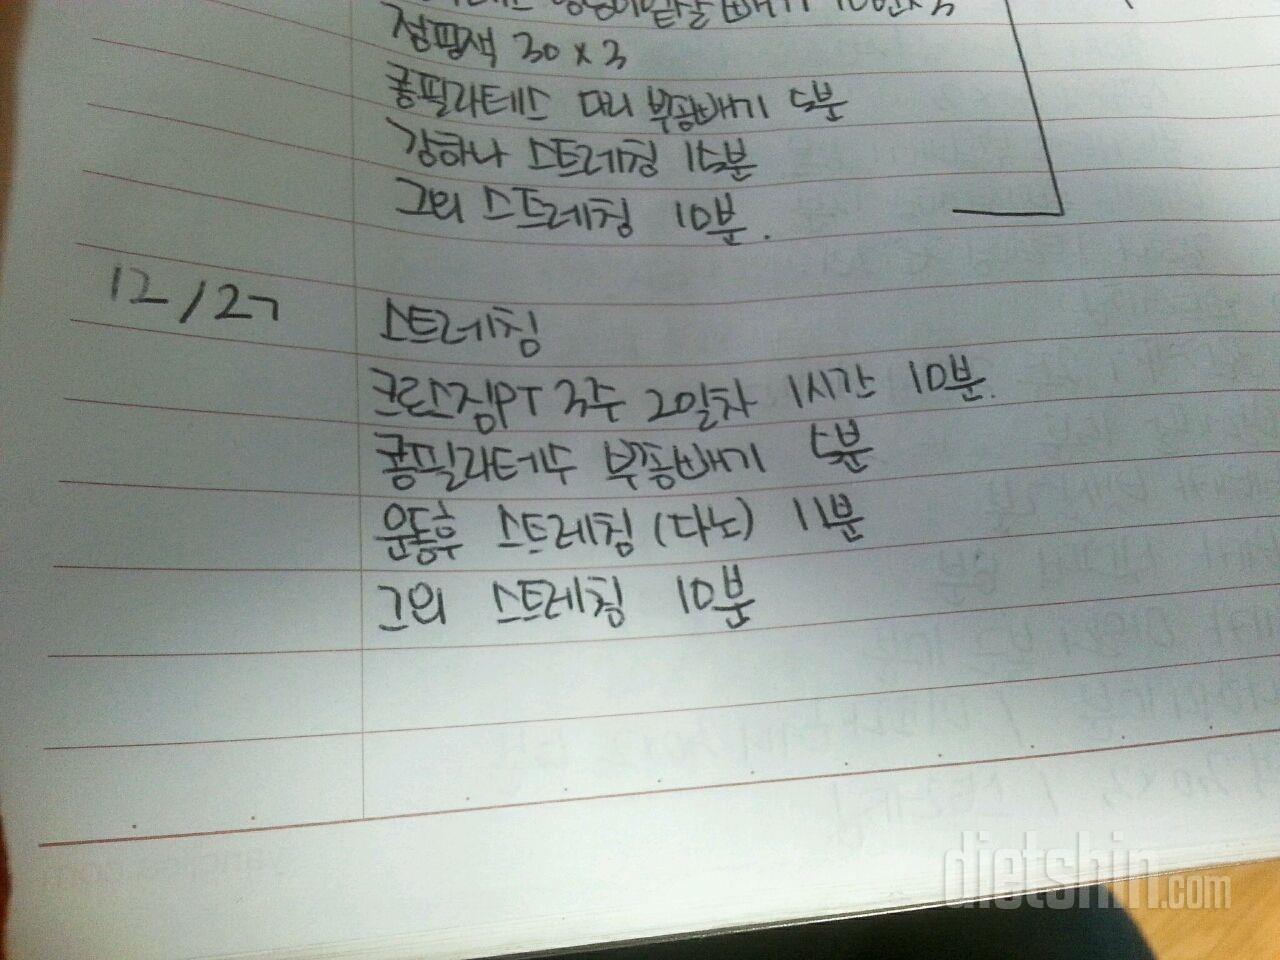 빼기 100번x3
점핑잭 30 x 3
콩필라테스 다리 부종빼기 5분
강하나 스트레칭 15분
그외 스트레칭 10분.
12/27 스트레칭
크로스짐PT 3주 2일차 1시간 10분.
콩필라테스 부종빼기 5분
운동후 스트레칭(다노) 11분
그외 스트레칭 10분
dietshin.com